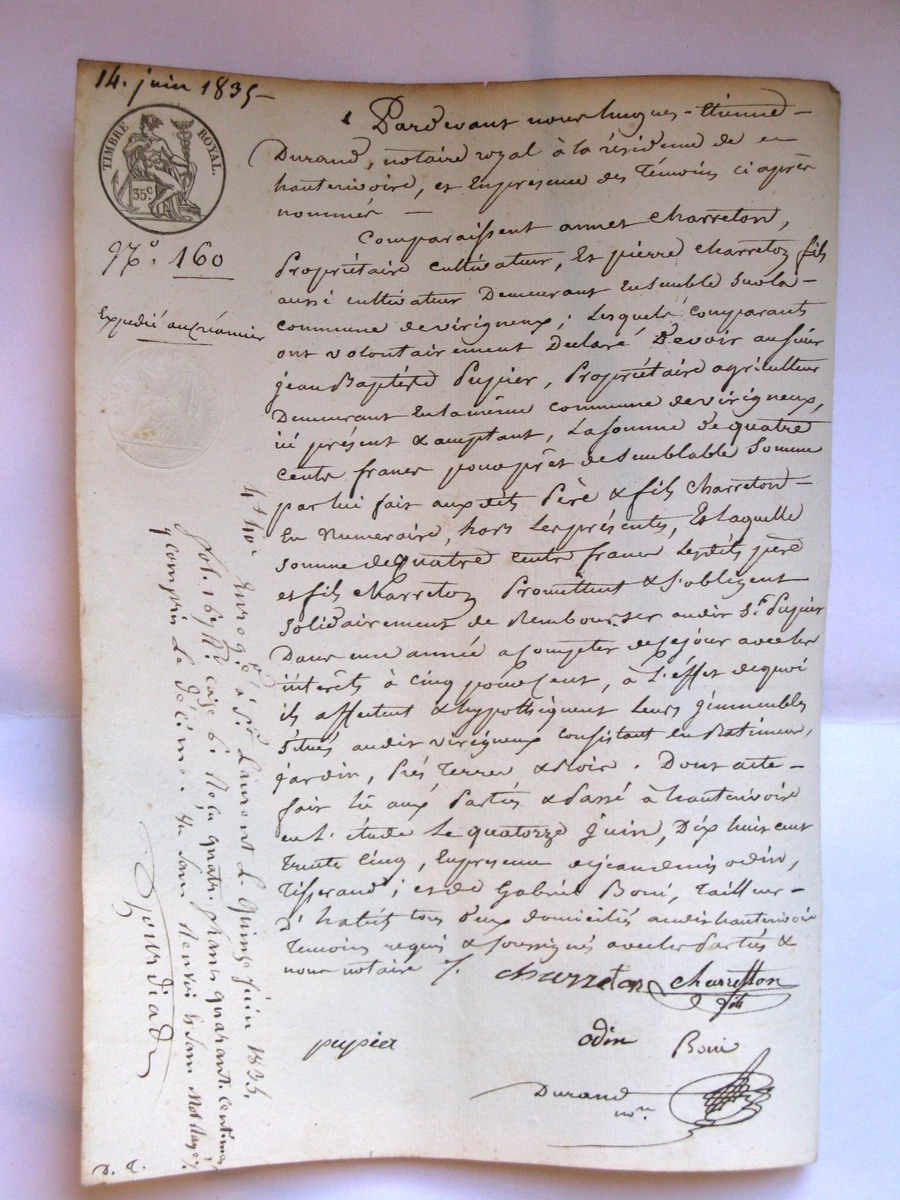 14. juin 1835
TIMBRE ROYAL.
35 c.
N.o 160
Expedié au créancier
Pardevant nous hugues-Etienne
Durand, notaire royal à la résidence de
hauterivoire, et En presence des Témoins ci après
nommés
Comparaissent annet Charreton,
Propriétaire cultivateur, Et pierre Charreton fils
aussi cultivateur Demeurant Ensemble Sur la
commune de virigneux; Lesquels comparants
ont volontairement Déclaré Devoir au sieur
jean Baptiste Pupier, Propriétaire agriculteur
Demeurant En la même commune de virigneux,
ici présent & acceptant, La somme de quatre
cents francs pour prêt de Semblable Somme
par lui fait aux dits Père & fils Charreton
En Numeraire, hors Les présentes, Et Laquelle
somme de quatre cents francs Lesdits père
et fils Charreton Promettent & S'obligent
Solidairement de Rembourser audit S.r Pupier
Dans une année a compter de ce jour avec les
intérêts à cinq pour cent, à L'effet de quoi
ils affectent & hypothèquent Leurs immeubles
Situés audit virigneux Consistant En Batiments,
jardin, Prés Terres & Bois. Dont acte
fait lû aux Parties & Passé à hauterivoire
en L'étude Le quatorze juin, Dix huit cent
trente cinq, En presence de jean denis odin,
Tisserand; et de Gabriel Boni, Tailleur
D'habits tous deux domiciliés audit hauterivoire
Temoins requis & soussignés avec les Parties &
nous notaire
Charreton Charretton
fils
pupier odin Boni
Durand
no.re
4 f 40 c
Enregé à St Laurent Le quinze juin 1835,
fol. 167 R.o case 6. Reçu quatre francs quarante centimes
y compris Le Décime. Sans Renvoi ni Mot Rayé
D. C.